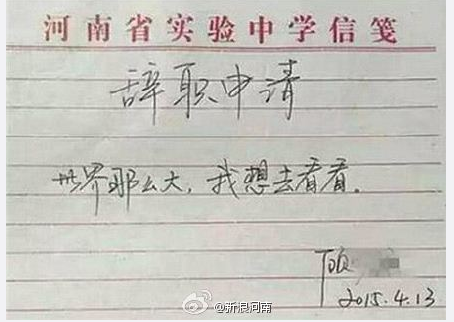 河南省实验中学信笺
辞职申请
世界那么大，我想去看看。
顾
2015.4.13
@新浪河南